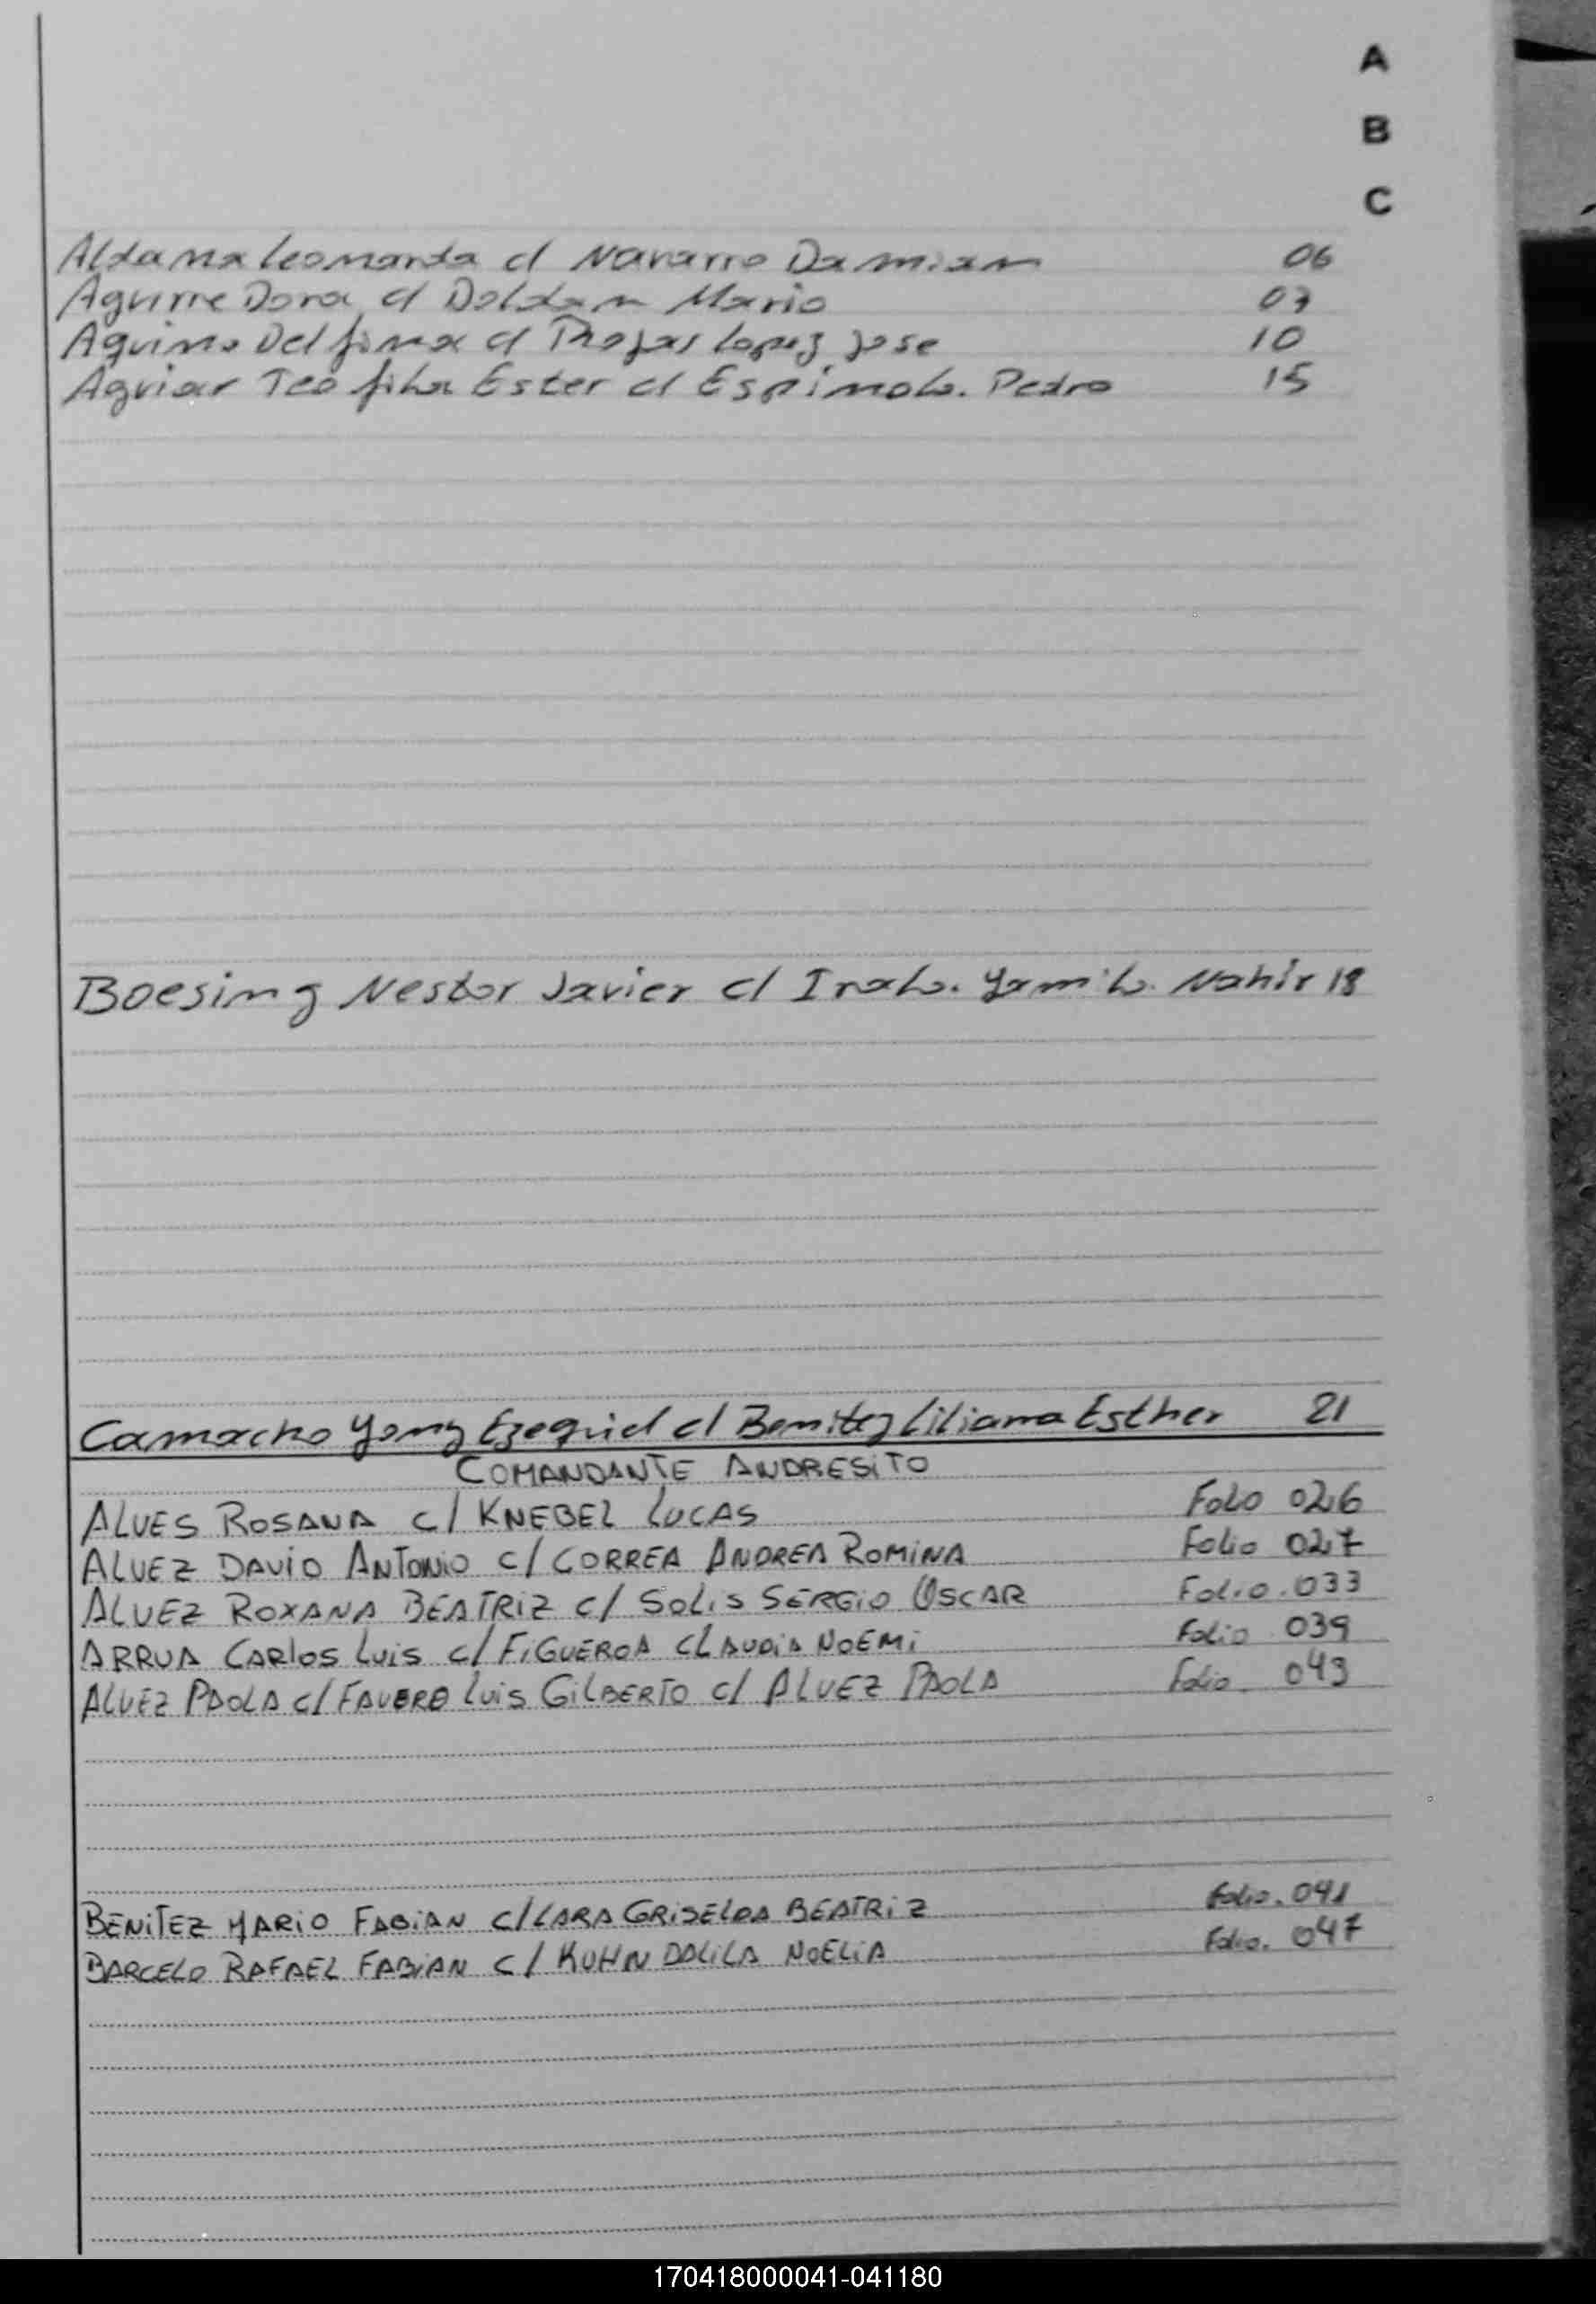 A
B
C
Aldana Leonarda c/ Navarro Damian 06
Aguirre Dora c/ Doldan Mario 07
Aquino Delfina c/ Rojas Lopez Jose 10
Aguiar Teofila Ester c/ Espinola Pedro 15
Boesing Nestor Javier c/ Irala Yamila Nahir 18
Camacho Yony Ezequiel c/ Benitez Liliana Esther 21
COMANDANTE ANDRESITO
ALVES ROSANA c/ KNEBEL LUCAS Folio 026
ALVEZ DAVID ANTONIO c/ CORREA ANDREA ROMINA Folio 027
ALVEZ ROXANA BEATRIZ c/ SOLIS SERGIO OSCAR Folio. 033
ARRUA CARLOS LUIS c/ FIGUEROA CLAUDIA NOEMI Folio 039
ALVEZ PAOLA c/ FAVERO LUIS GILBERTO c/ ALVEZ PAOLA Folio. 043
BENITEZ MARIO FABIAN c/ LARA GRISELDA BEATRIZ Folio. 041
BARCELO RAFAEL FABIAN c/ KUHN DALILA NOELIA Folio. 047
170418000041-041180